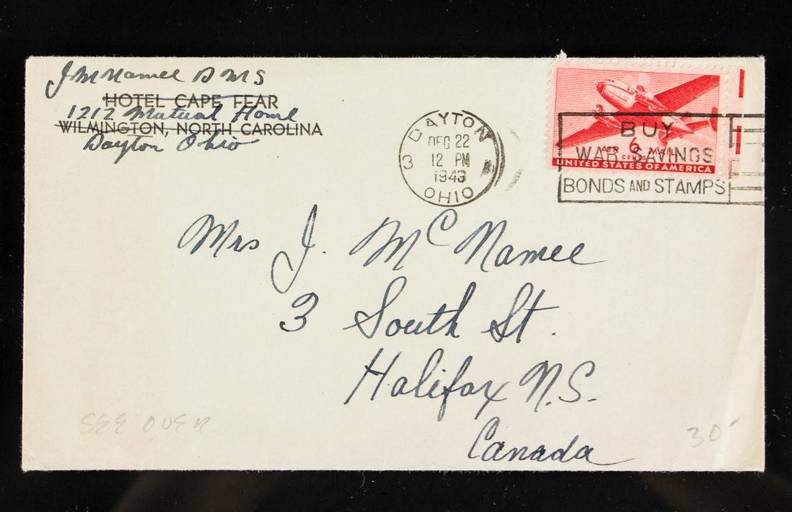 J McNamee B M S
HOTEL CAPE FEAR
1212 Mutual Home
WILMINGTON, NORTH CAROLINA
Dayton Ohio
DAYTON
DEC 22
12 PM
1943
3
OHIO
AIR 6 MAIL
CENTS
UNITED STATES OF AMERICA
BUY
WAR SAVINGS
BONDS AND STAMPS
Mrs J. McNamee
3 South St.
Halifax N.S.
Canada
SEE OVER
30